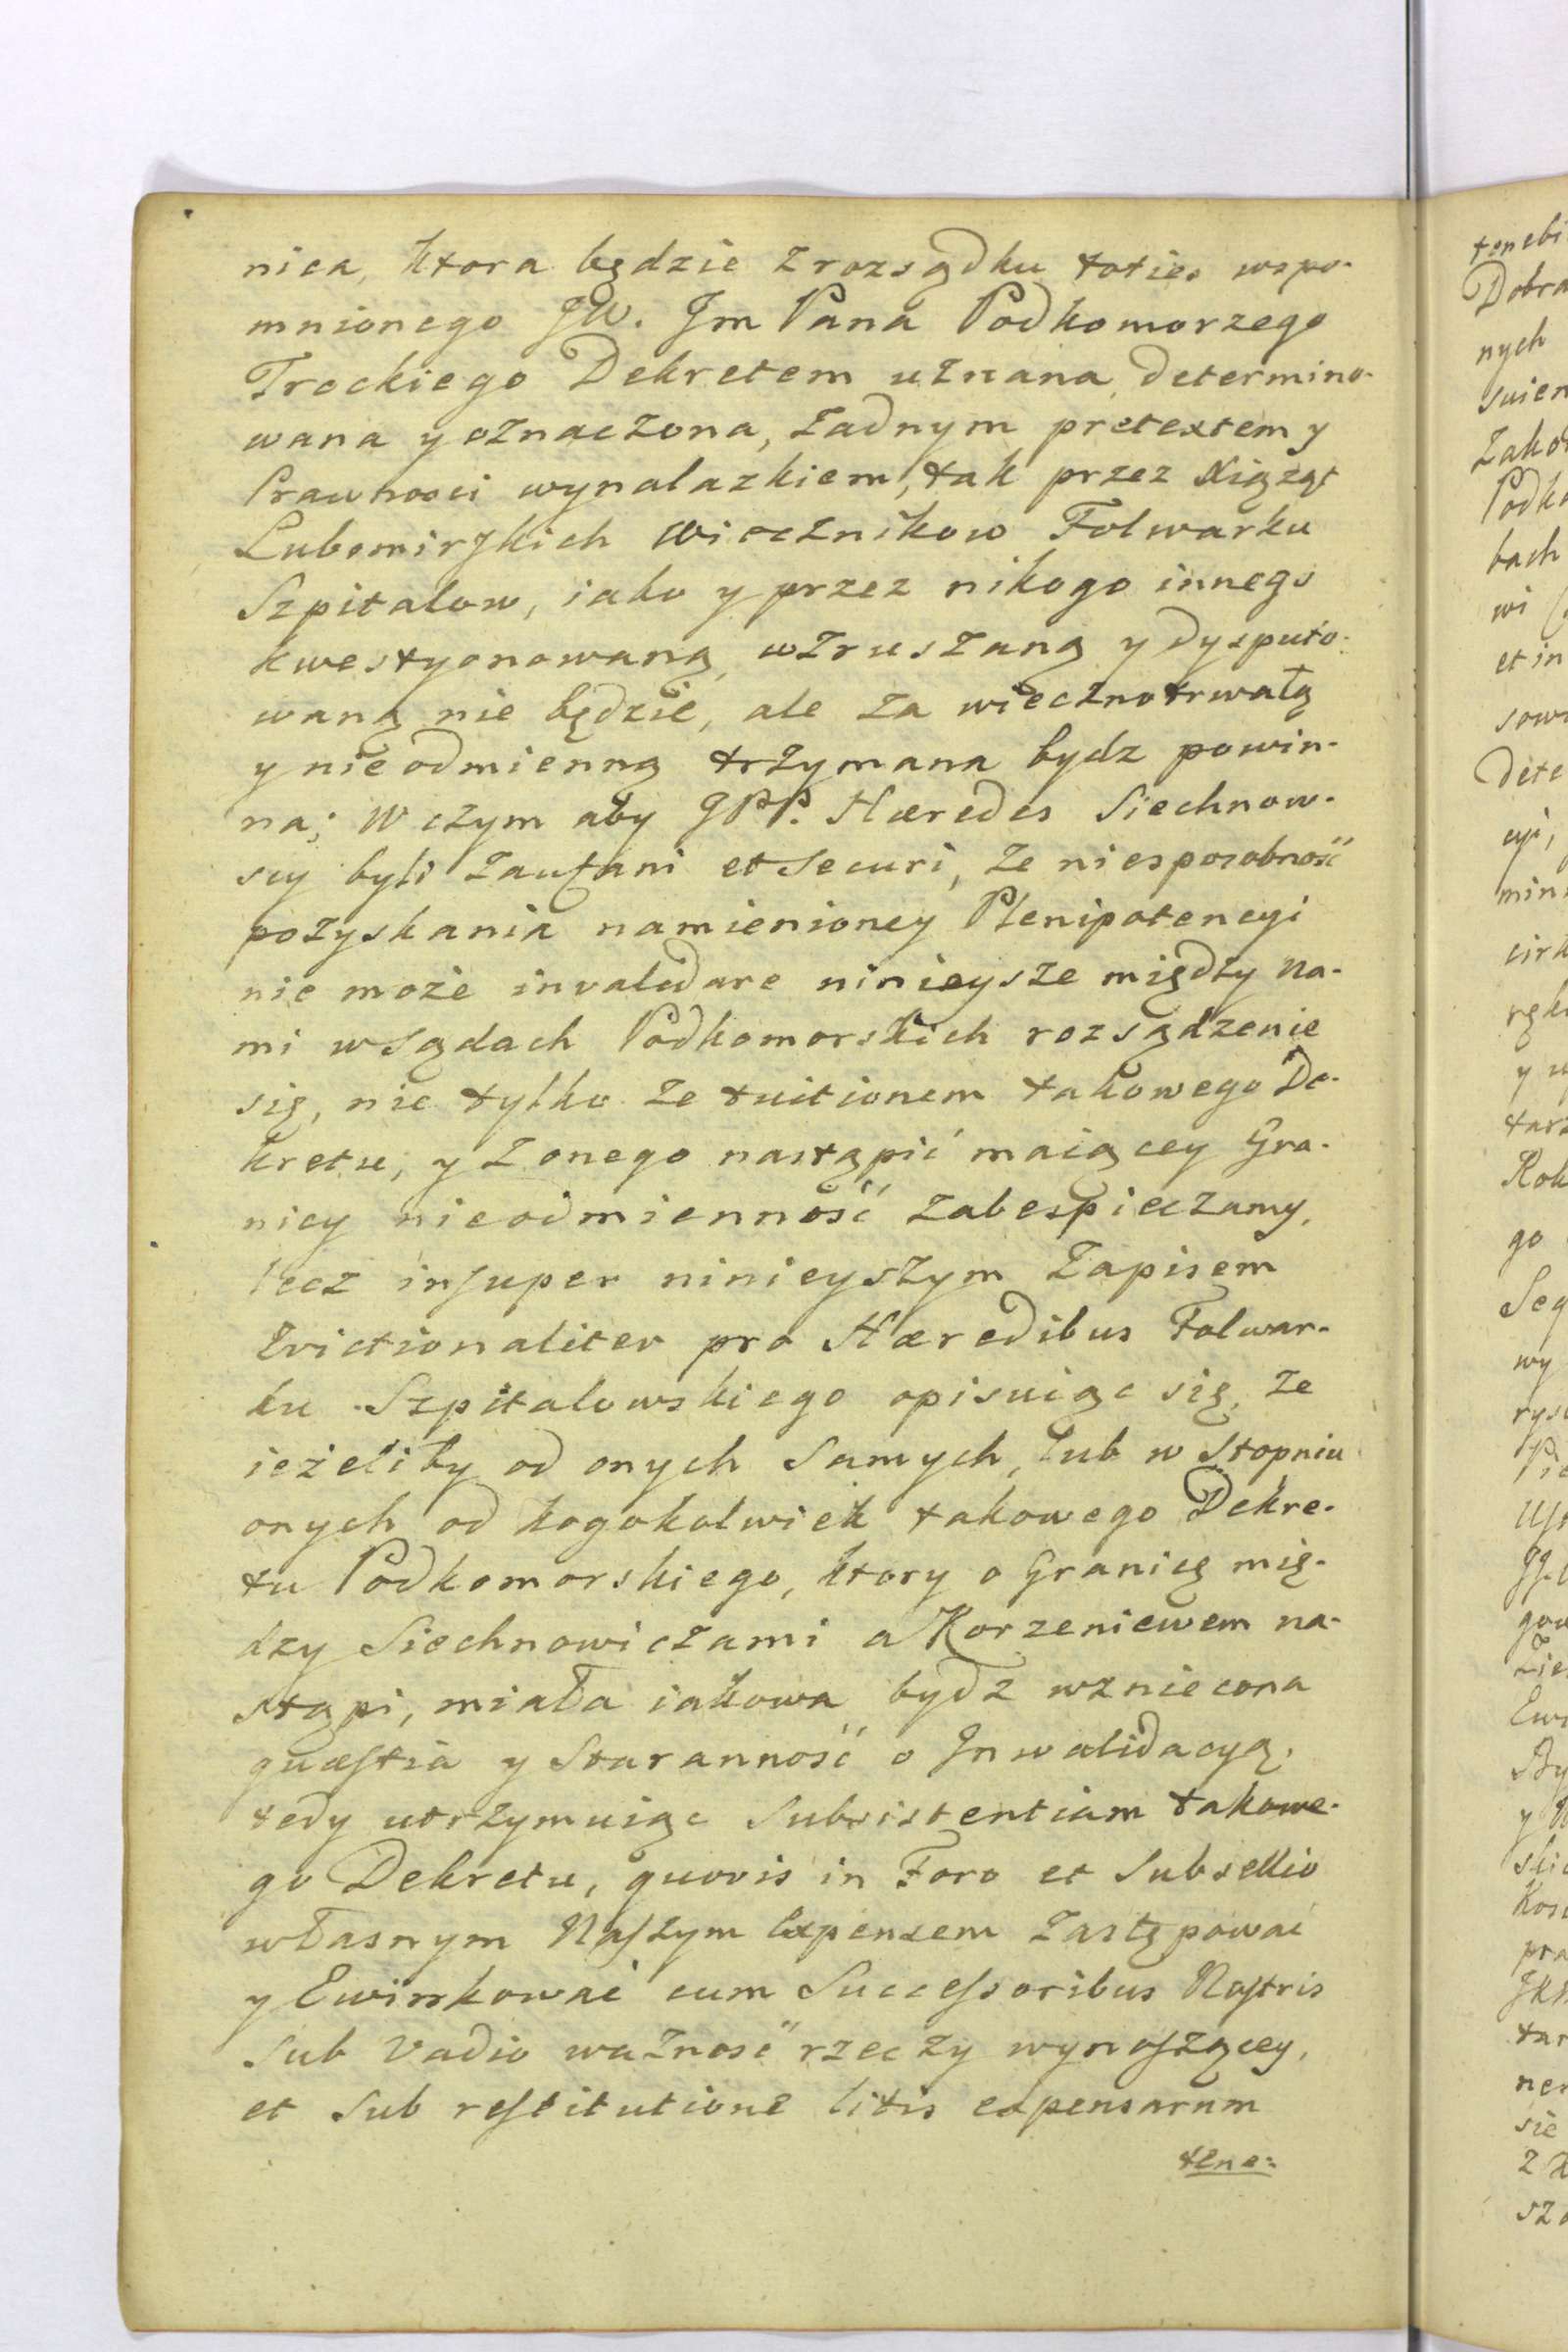 nica, ktora będzie z rozsądku toties wspo-
mnionego JW. Jm Pana Podkomorzego
Trockiego Dekretem uznana, determino-
wana y oznaczona, żadnym pretextem y
Prawnosci wynalazkiem, tak przez Xiążąt
Lubomirskich Wiecznikow Folwarku
Szpitalow, iako y przez nikogo innego
kwestyonowaną, wzruszaną y dysputo-
waną nie będzie, ale za wiecznotrwałą
y nieodmienną trzymana bydz powin-
na; W czym aby JPP. Hæredes Siechnow-
scy byli zaufani et Securi, że niesposobność
pozyskania namienioney Plenipotencyi
nie może invalidare ninieysze między na-
mi w sądach Podkomorskich rozsądzenie
się, nie tylko że tuitionem takowego De-
kretu, y z onego nastąpić maiącey Gra-
nicy nieodmienność zabespieczamy,
lecz insuper ninieyszym Zapisem
Evictionaliter pro Hæredibus Folwar-
ku Szpitalowskiego opisuiąc się, że
ieżeliby od onych samych, lub w Stopniu
onych od kogokolwiek takowego Dekre-
tu Podkomorskiego, ktory o Granicę mię-
dzy Siechnowiczami a Korzeniewem na-
stąpi, miała iakowa bydz wzniecona
quæstia y Staranność o Inwalidacyą,
tedy utrzymuiąc Subsistentiam takowe-
go Dekretu, quovis in Foro et Subsellio
własnym Naszym Expensem zastępować
y Ewinkować cum Successoribus Nostris
sub vadio ważność rzeczy wynoszącey,
et sub restitutione litis expensarum
tene:
tenebi
Dobra
nych
Zako
Podko
bach
wi
et in
sowi
Dete
cyi,
min
Rok
go
wy